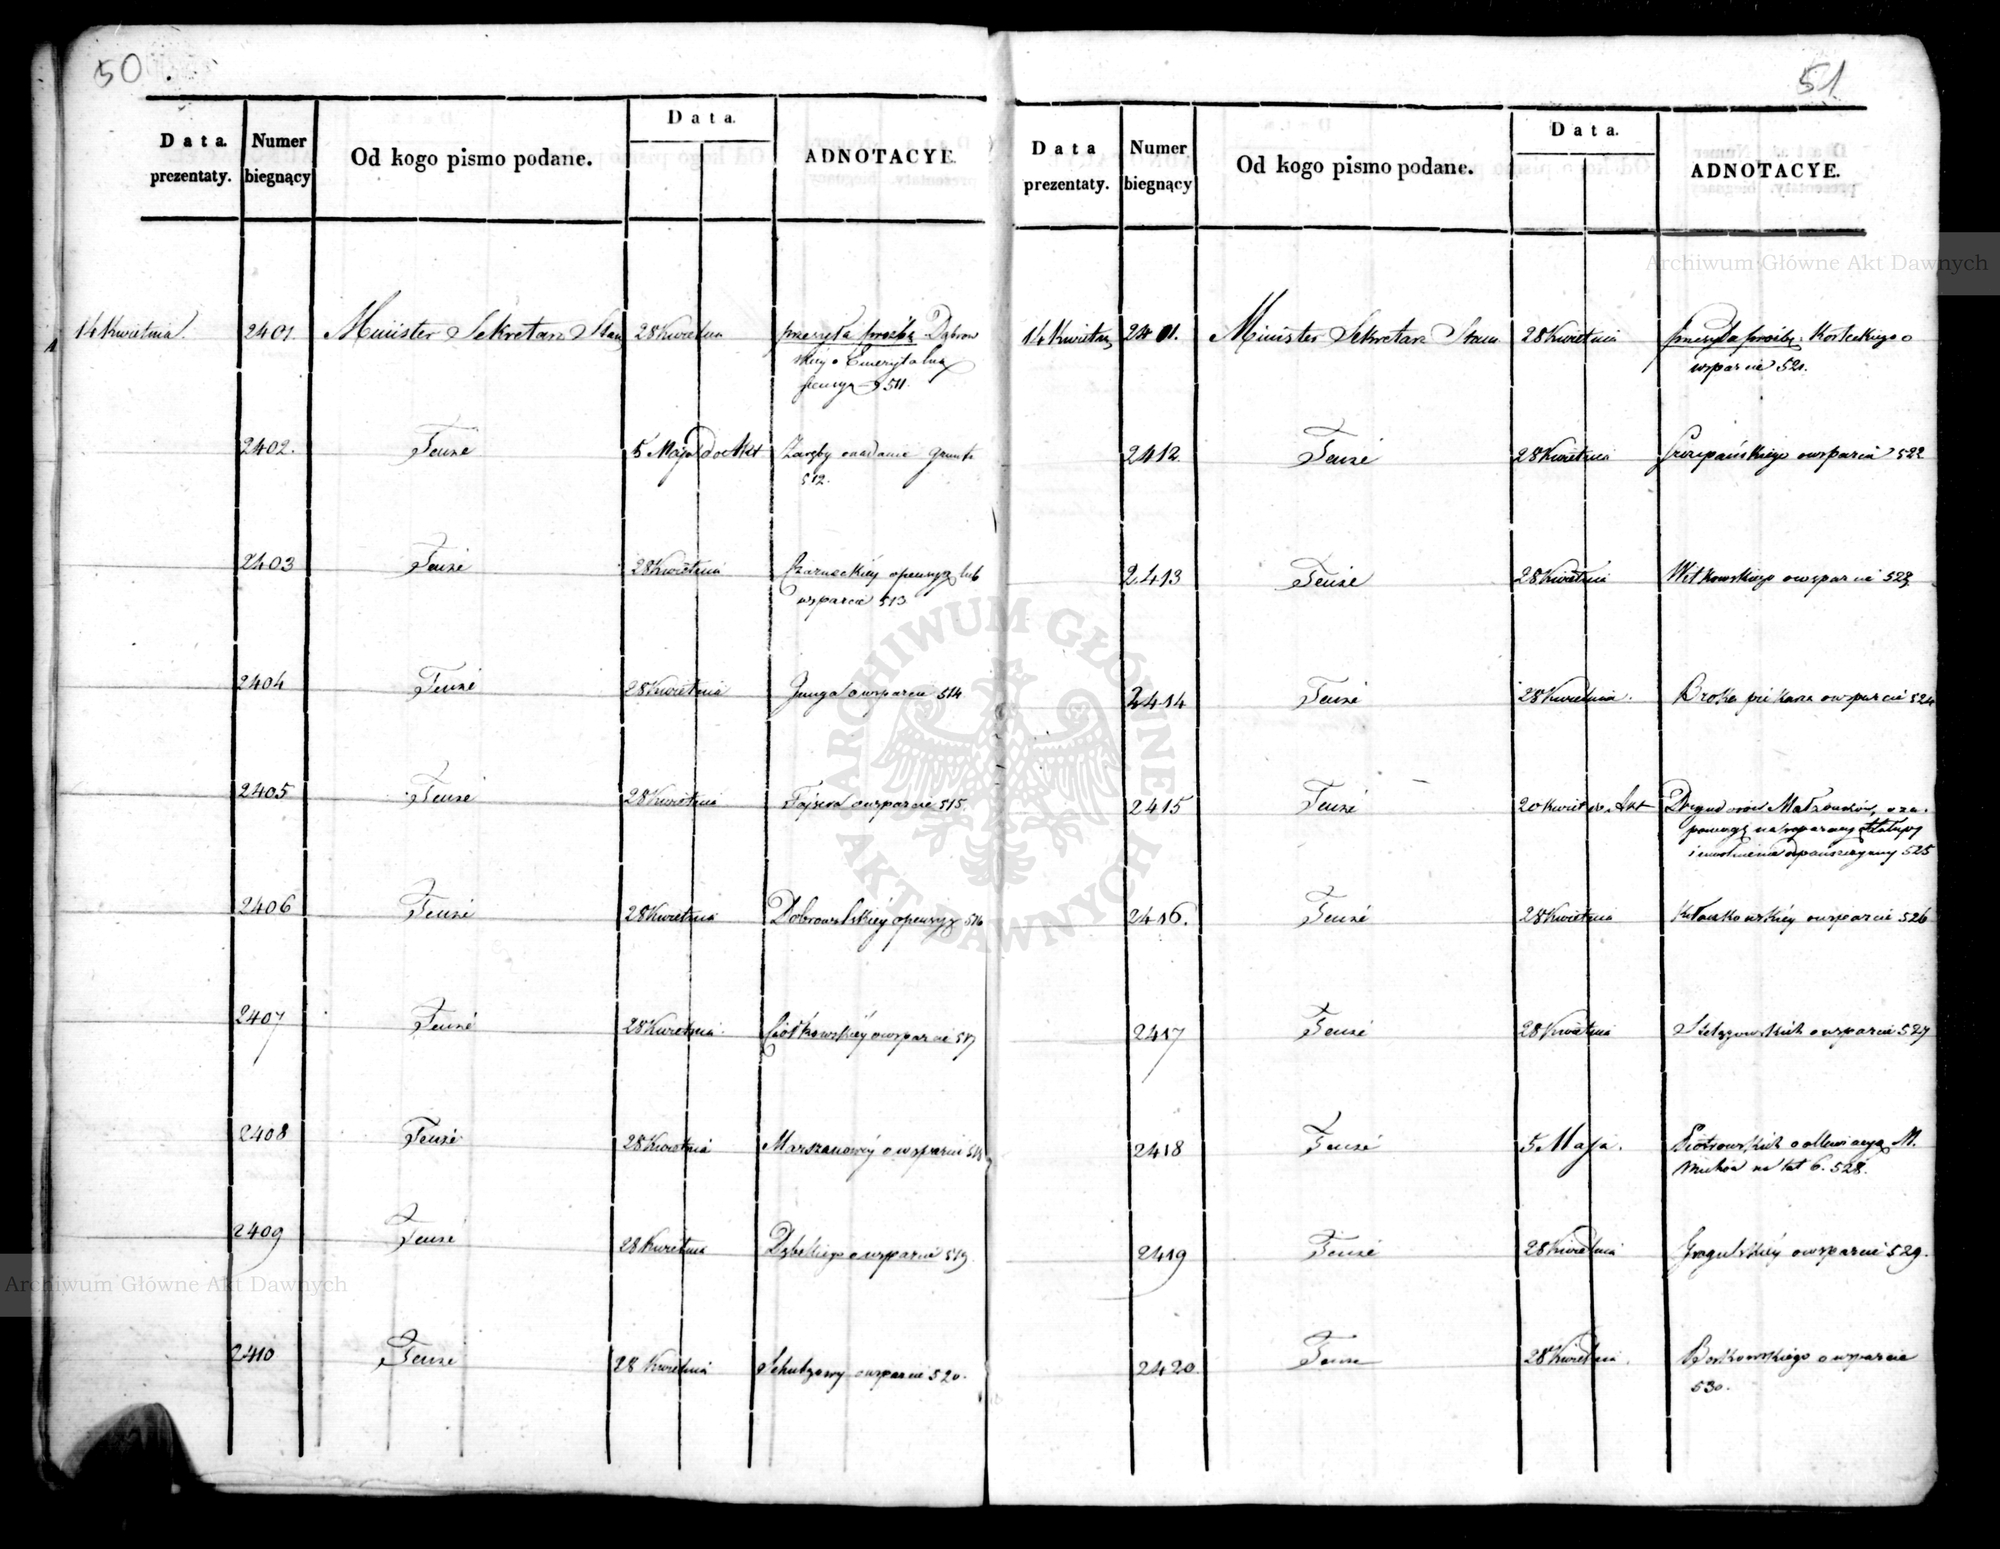 50
Data prezentaty. Numer biegnący Od kogo pismo podane. Data. ADNOTACYE.
14 Kwietnia. 2401. Minister Sekretarz Stanu 28 Kwietnia przesyła prośbę Dąbrow
skiey o Emerytalną
pensyą 511.
2402. Tenże 5 Maja do Akt Zaręby o nadanie gruntu
512.
2403 Tenże 28 Kwietnia Czarneckiéy o pensyą lub
wsparcie 513.
2404 Tenże 28 Kwietnia o wsparcie 514
2405 Tenże 28 Kwietnia o wsparcie 515.
2406 Tenże 28 Kwietnia Dobrowolskiéy o pensyą 516
2407 Tenże 28 Kwietnia Ciołkowskiéy o wsparcie 517
2408 Tenże 28 Kwietnia o wsparcie 518
2409 Tenże 28 Kwietnia Dębskiego o wsparcie 519.
2410 Tenże 28 Kwietnia Schultzowy o wsparcie 520.
51
Data prezentaty. Numer biegnący Od kogo pismo podane. Data. ADNOTACYE.
14 Kwietnia 2401. Minister Sekretarz Stanu 28 Kwietnia przesyła prośbę Korteckiego o
wsparcie 521.
2412. Tenże 28 Kwietnia Szczepańskiego o wsparcie 522
2413 Tenże 28 Kwietnia Witkowskiego o wsparcie 523
2414 Tenże 28 Kwietnia. o wsparcie 524
2415 Tenże 20 Kwiet do Akt Małżonków, o za
pomogę na reparacyą chałupy
i uwolnienie od pańszczyzny 525
2416. Tenże 28 Kwietnia o wsparcie 526
2417 Tenże 28 Kwietnia o wsparcie 527
2418 Tenże 5 Maja. Piotrowskich
na lat 6. 528.
2419 Tenże 28 Kwietnia o wsparcie 529.
2420. Tenże 28 Kwietnia. Borkowskiego o wsparcie
530.
Archiwum Główne Akt Dawnych
ARCHIWUM GŁÓWNE AKT DAWNYCH
Archiwum Główne Akt Dawnych